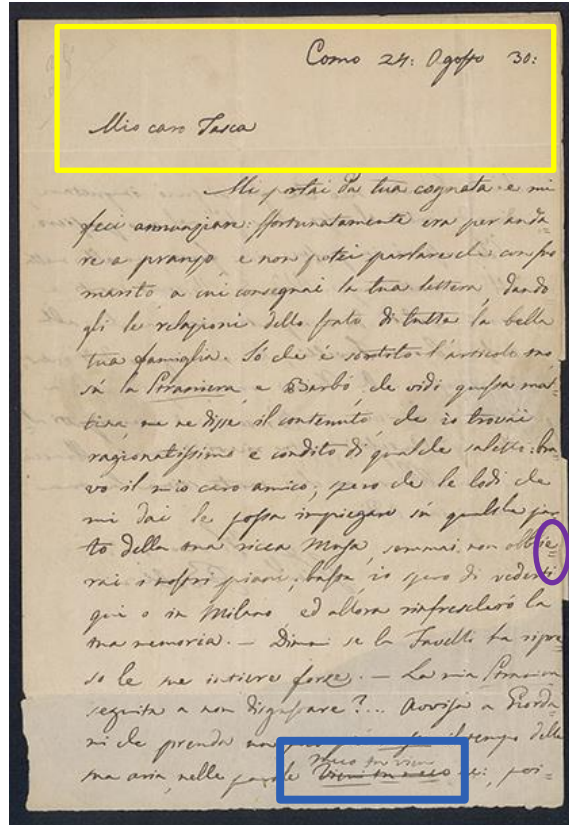 Como 24: Agosto 30:
Mio caro Tasca
Mi portai da tua cognata e mi
feci annunziare: sfortunatamente era per anda=
re a pranzo e non potei parlare che con suo
marito a cui consegnai la tua lettera, dando
gli le relazioni dello stato di tutta la bella
tua famiglia. Só che è sortito l'articolo suo
sú la Straniera e Barbó che vidi questa mat=
tina, me ne disse il contenuto, che io trovai
ragionatissimo e condito di qualche saletto: bra
vo il mio caro amico; spero che le lodi che
mi dai le possa impiegare sú qualche par
to della tua ricca Musa, semmai non obblie=
rai i nostri piani, basta, io spero di vederti
qui o in Milano ed allora rinfrescheró la
tua memoria. — Dimmi se la Favelli ha ripre
so le sue intiere forze. — La mia Straniera
seguita a non disgustare?... Avvisa a Giorda
ni che prenda un il tempo della
sua aria, nelle parole Vieni tu meco
meco tu vieni poi=